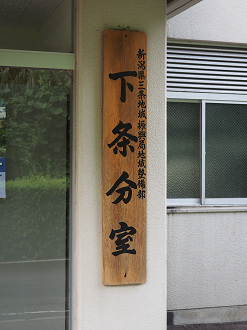 新潟県三条地域振興局地域整備部
下条分室